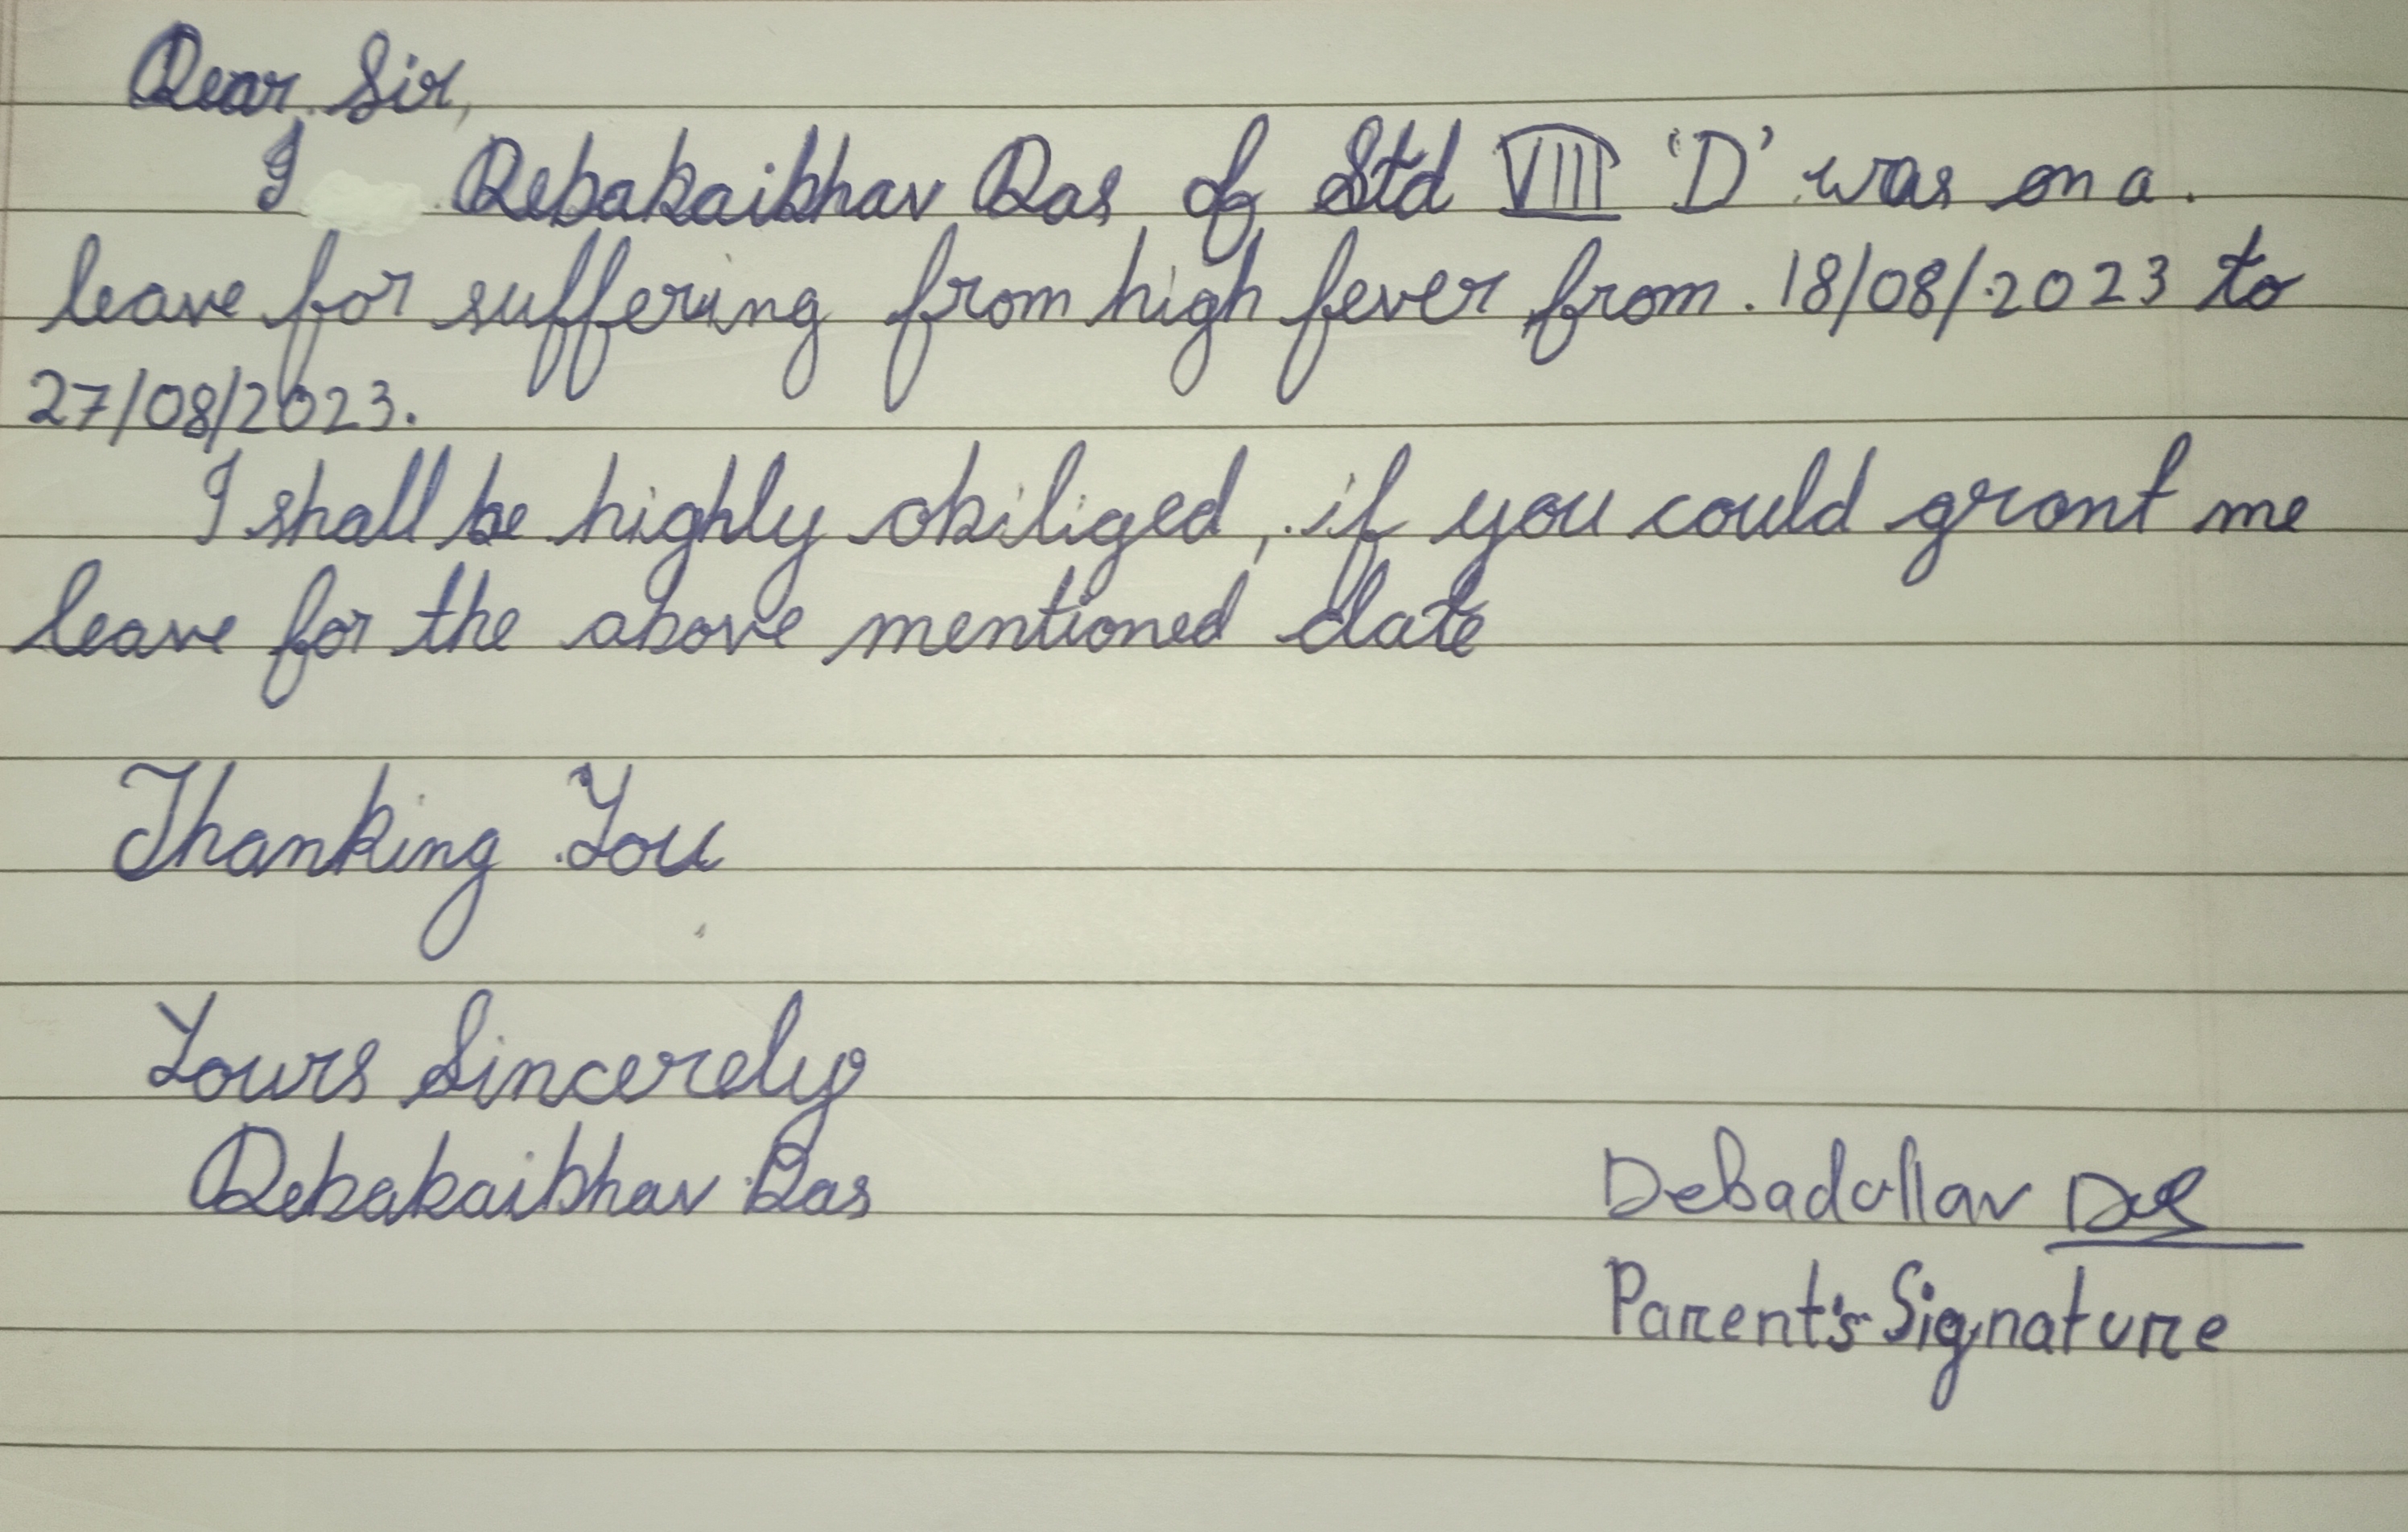 Dear Sir,
I Debakaibhav Das of Std VIII 'D' was on a.
leave for suffering from high fever from. 18/08/2023 to
27/08/2023.
I shall be highly obiliged, if you could grant me
leave for the above mentioned date
Thanking You
Yours Sincerely
Debakaibhav Das
Das
Parent's Signature